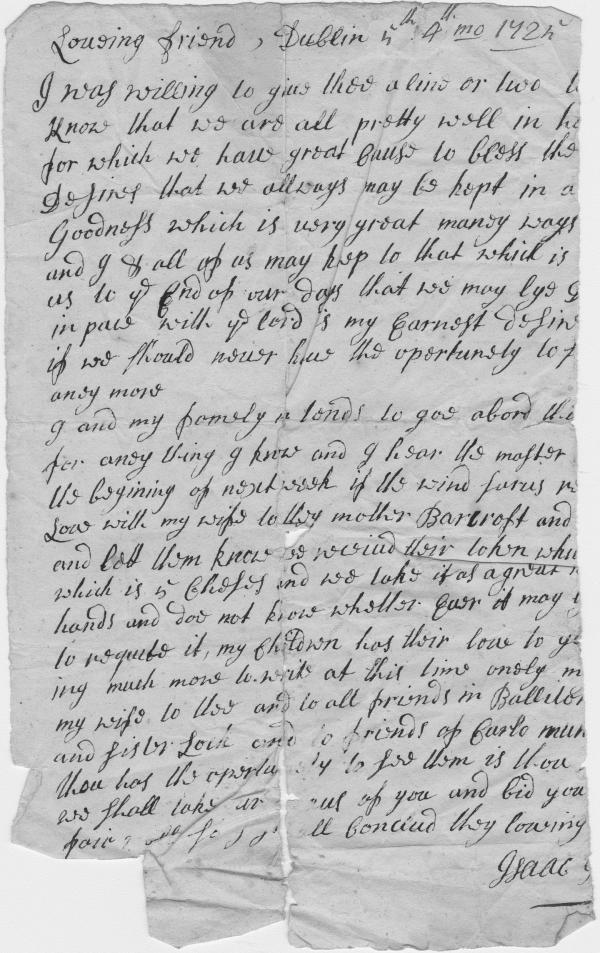 Loveing friend, Dublin 5th 4th mo 1725
I was willing to give thee a line or two
know that we are all pretty well in
for which we have great Cause to bless the
Desires that we allways may be kept in a
Goodness which is very great maney ways
and I & all of us may kep to that which is
us to ye End of our days that we may lye
in pace with ye lord is my Earnest desire
if we should never have the opertunety to
aney more
I and my famely tends to goe abord
for aney thing I know and I hear the master
the begining of next week if the wind
Love with my wife to they mother Barcroft and
and lett them know we receivd their token
which is 5 Cheses and we take it as a great
hands and doe not know whether Ever it may
to requite it, my Children has their love to
ing much more to write at this time onely
my wife to thee and to all friends in
and sister Lock and to friends of Carlo
thou has the to see them is thou
we shall take of you and bid you
Conclud they loveing
Isaac